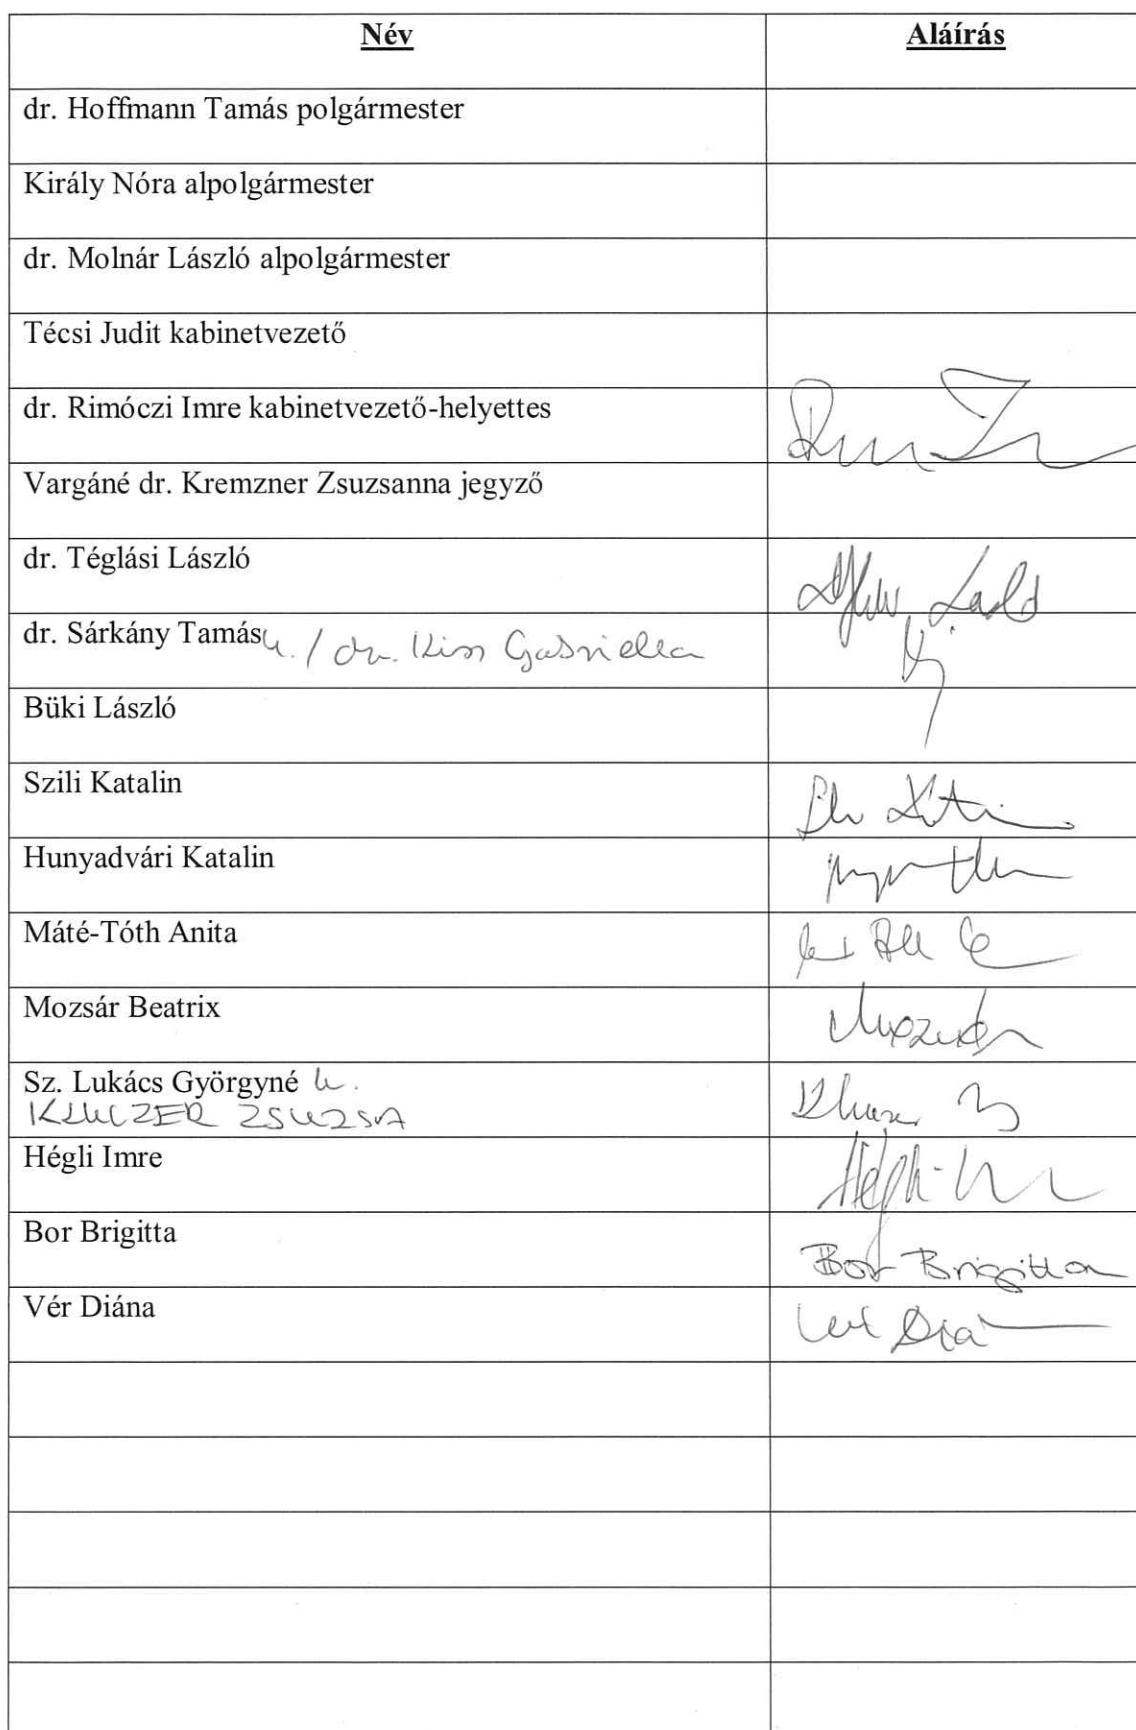 Név Aláírás
dr. Hoffmann Tamás polgármester
Király Nóra alpolgármester
dr. Molnár László alpolgármester
Técsi Judit kabinetvezető
dr. Rimóczi Imre kabinetvezető-helyettes
Vargáné dr. Kremzner Zsuzsanna jegyző
dr. Téglási László
dr. Sárkány Tamás h. / dr. Kiss Gabriella
Büki László
Szili Katalin
Hunyadvári Katalin
Máté-Tóth Anita
Mozsár Beatrix
Sz. Lukács Györgyné h.
ZSUZSA
Hégli Imre
Bor Brigitta Bor Brigitta
Vér Diána